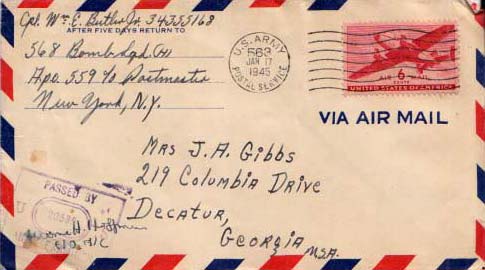 Cpl. Wm. E. Butler Jr. 34355168
AFTER FIVE DAYS RETURN TO
568 Bomb Sqd.
A.p.o. 559 % Postmaster
New York, N.Y.
U.S. ARMY
563
JAN 17
1945
POSTAL SERVICE
AIR MAIL
6
CENTS
UNITED STATES OF AMERICA
VIA AIR MAIL
Mrs J.A. Gibbs
219 Columbia Drive
Decatur,
Georgia
U.S.A.
PASSED BY